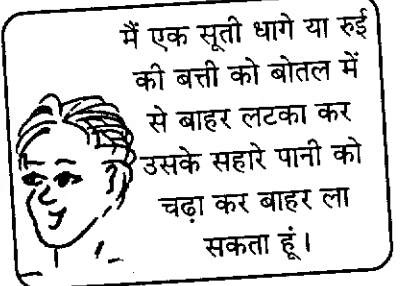 मैं एक सूती धागे या रुई
की बत्ती को बोतल में
से बाहर लटका कर
उसके सहारे पानी को
चढ़ा कर बाहर ला
सकता हूं।